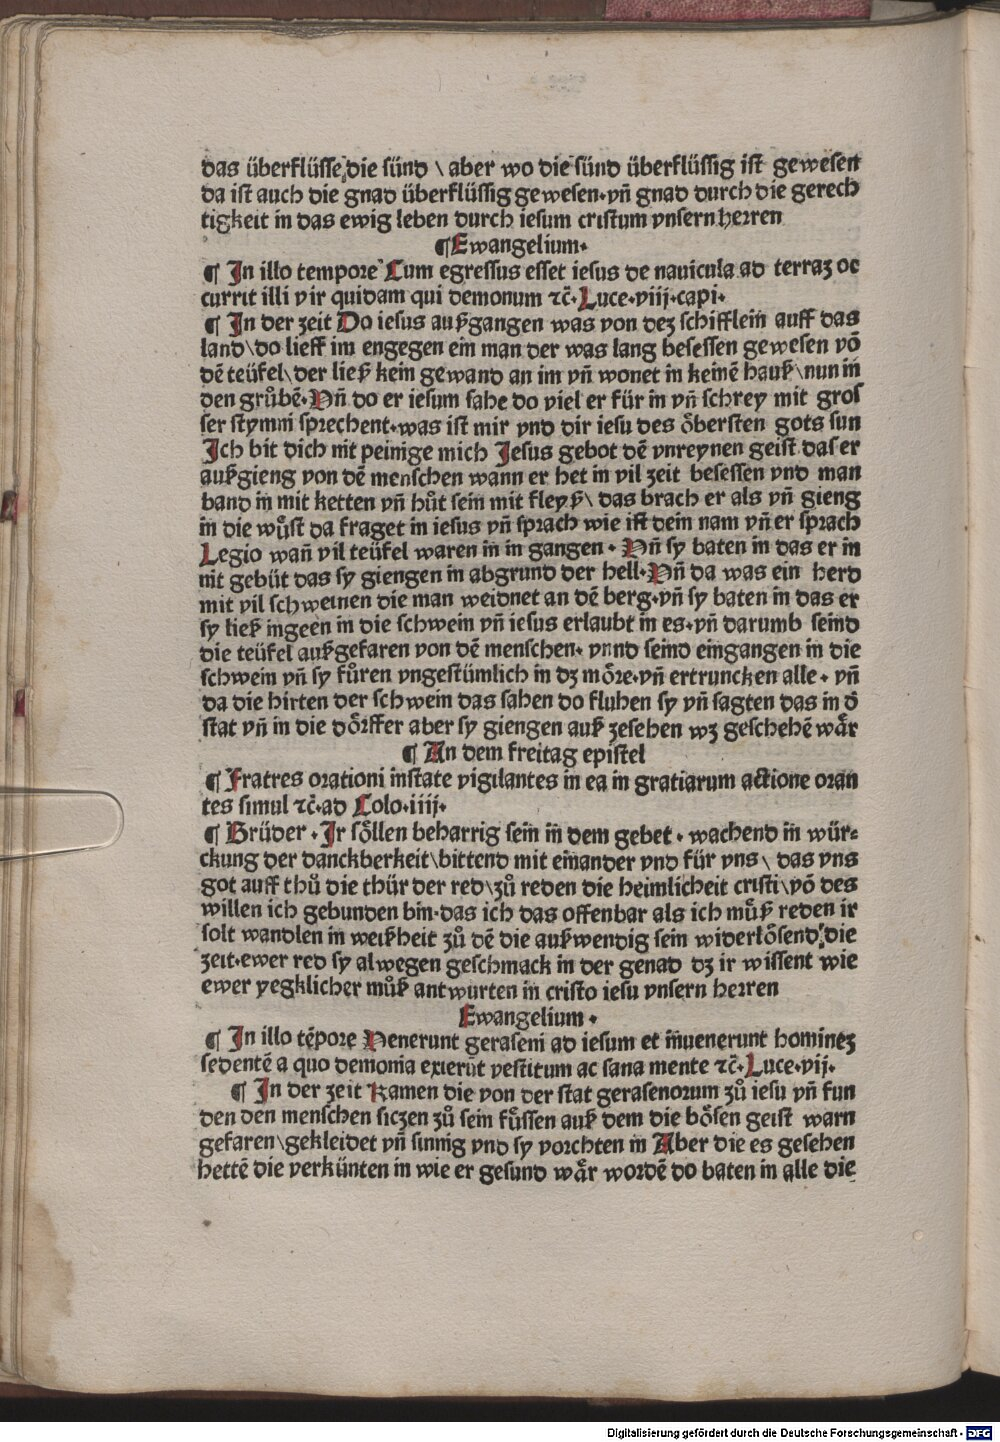 das überflüsse die sünd \ aber wo die sünd überflüssig ist gewesen
da ist auch die gnad überflüssig gewesen·vñ gnad durch die gerech
tigkeit in das ewig leben durch iesum cristum vnsern herren
¶Ewangelium·
¶ In illo tempore Cum egressus esset iesus de nauicula ad terraʒ oc
currit illi vir quidam qui demonum ⁊c̄·Luce·viij·capi·
¶ In der zeit Do iesus außgangen was von deʒ schifflein auff das
land\do lieff im engegen ein man der was lang besessen gewesen vō
dē teüfel\der ließ kein gewand an im vñ wonet in keinē hauß\nun in
den grůbē·Vñ do er iesum sahe do viel er für in vñ schrey mit gros
ser stymm sprechent·was ist mir vnd dir iesu des öbersten gots sun
Ich bit dich nit peinige mich Jesus gebot dē vnreynen geist das er
außgieng von dē menschen wann er het in vil zeit besessen vnd man
band in mit ketten vñ hůt sein mit fleyß\ das brach er als vñ gieng
in die wůst da fraget in iesus vñ sprach wie ist dein nam vñ er sprach
Legio wañ vil teüfel waren in in gangen · Vñ sy baten in das er in
nit gebüt das sy giengen in abgrund der hell·Vñ da was ein herd
mit vil schweinen die man weidnet an dē berg·vñ sy baten in das er
sy ließ ingeen in die schwein vñ iesus erlaubt in es·vñ darumb seind
die teüfel außgefaren von dē menschen· vnnd seind eingangen in die
schwein vñ sy fůren vngestümlich in dʒ möre·vñ ertruncken alle · vñ
da die hirten der schwein das sahen do fluhen sy vñ sagten das in d̄
stat vñ in die dörffer aber sy giengen auß zesehen wʒ geschehē wår
¶ An dem freitag epistel
¶ Fratres orationi instate vigilantes in ea in gratiarum actione oran
tes simul ⁊c̄·ad Colo·iiij·
¶ Brüder · Ir söllen beharrig sein in dem gebet · wachend in wür⸗
ckung der danckberkeit\bittend mit einander vnd für vns\ das vns
got auff thů die thür der red\zů reden die heimlicheit cristi\vō des
willen ich gebunden bin·das ich das offenbar als ich můß reden ir
solt wandlen in weißheit zů dē die außwendig sein widerlösend die
zeit·ewer red sy alwegen geschmack in der genad dʒ ir wissent wie
ewer yegklicher můß antwurten in cristo iesu vnsern herren
Ewangelium ·
¶ In illo tēpore Venerunt geraseni ad iesum et inuenerunt homineʒ
sedentē a quo demonia exierūt vestitum ac sana mente ⁊c̄·Luce·vij·
¶ In der zeit Kamen die von der stat gerasenorum zů iesu vñ fun
den den menschen siczen zů sein fůssen auß dem die bösen geist warn
gefaren\gekleidet vñ sinnig vnd sy vorchten in Aber die es gesehen
hettē die verkünten in wie er gesund wår wordē do baten in alle die
Digitalisierung gefördert durch die Deutsche Forschungsgemeinschaft - DFG